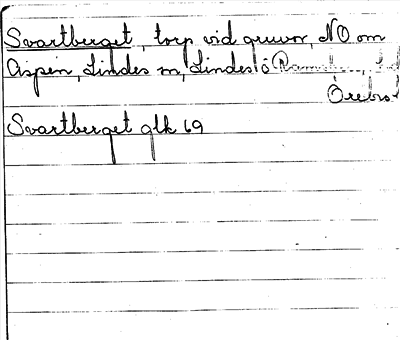 Svartberget, torp vid gruvor, NO om
Aspen, Lindes sn, Lindes o
Örebro
Svartberget glk 69